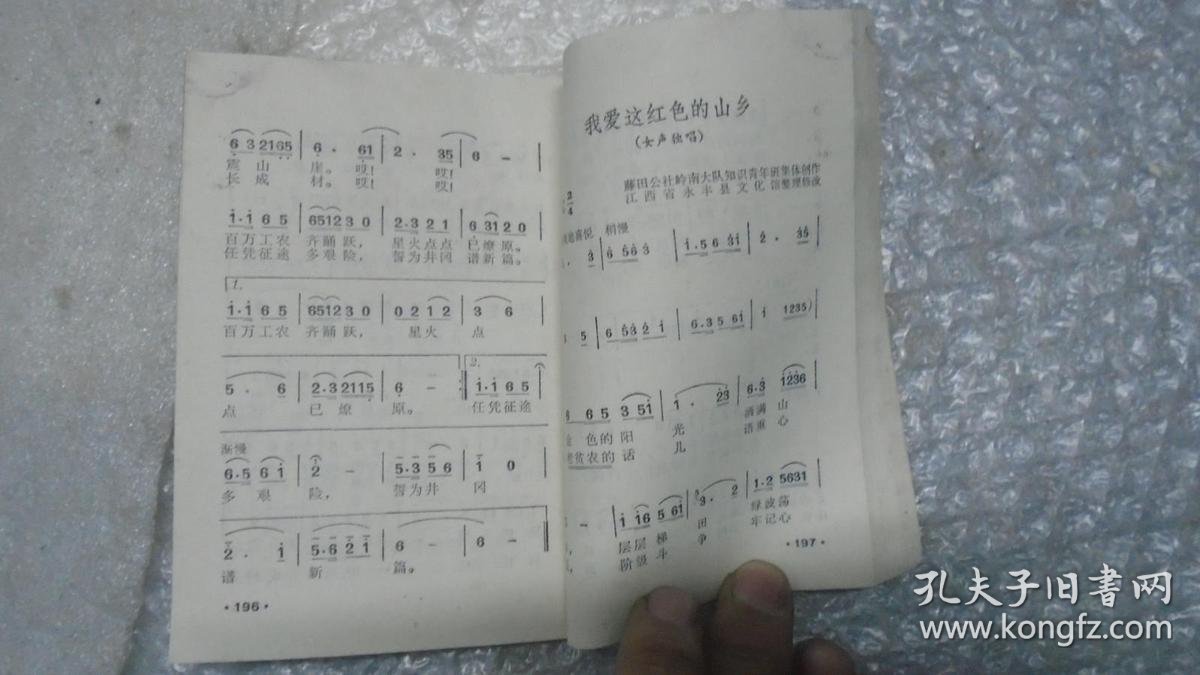 6 3 2165 | 6 . 61 | 2 . 35 | 6 - |
震 山 崖。 哎! 哎!
长 成 材。 哎! 哎!
1·1 6 5 | 6512 3 0 | 2·3 2 1 | 6 31 2 0 |
百万工农 齐踊跃, 星火点点 已燎原。
任凭征途 多艰险, 誓为井冈 谱新篇。
1.
1·1 6 5 | 6512 3 0 | 0 2 1 2 | 3 6 |
百万工农 齐踊跃, 星火 点
2.
5 . 6 | 2·3 2115 | 6 - :| 1·1 6 5 |
点 已燎 原。 任凭征途
渐慢
6·5 6 1 | 2 - | 5·3 5 6 | 1 0 |
多艰 险, 誓为井 冈
2 . 1 | 5·6 2 1 | 6 - | 6 - ||
谱 新 篇。
·196·
我爱这红色的山乡
(女声独唱)
藤田公社岭南大队知识青年班集体创作
江西省永丰县文化馆整理修改
2/4
喜悦 稍慢
3 | 6 56 3 | 1.5 6 31 | 2 . 35 |
5 | 6 53 2 1 | 6.3 5 61 | 1 1235) |
6 5 3 51 | 1 . 23 | 6·3 1236 |
色的阳 光 洒满 山
贫农的话 儿 语重 心
- | 1 16 5 61 | 3 . 2 | 1·2 5631 |
层层梯 田 绿波荡
阶级斗 争 牢记心
·197·
孔夫子旧书网
www.kongfz.com